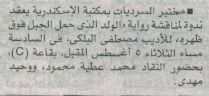 ■ مختبر السرديات بمكتبة الإسكندرية يعقد
ندوة لمناقشة رواية «الولد الذى حمل الجبل فوق
ظهره» للأديب مصطفى البلكى، فى السادسة
مساء الثلاثاء ٥ أغسطس المقبل، بقاعة (C)،
بحضور النقاد محمد عطية محمود، ووحيد
مهدى.